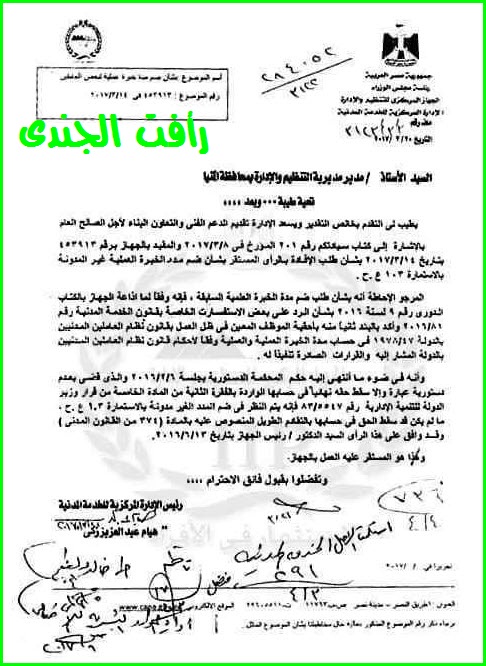 جمهورية مصر العربية
رئاسة مجلس الوزراء
الجهاز المركزي للتنظيم والإدارة
الإدارة المركزية للخدمة المدنية
ملف رقم
التاريخ
٢٨٤٠٥٢
٣١٢٢
أسم الموضوع : بشأن ضم مدة خبرة عملية لبعض العاملين
رقم الموضوع : ٤٥٣٩١٣ في ٢٠١٧/٣/١٤
رأفت الجندى
السيد الأستاذ / مدير مديرية التنظيم والإدارة بمحافظة المنيا
تحية طيبة ٠٠٠ وبعد ،،،
يطيب لى التقدم بخالص التقدير ويسعد الإدارة تقديم الدعم الفنى والتعاون البناء لأجل الصالح العام
بالإشارة إلى كتاب سيادتكم رقم ٢٠١ المؤرخ فى ٢٠١٧/٣/٨ والمقيد بالجهاز برقم ٤٥٣٩١٣
بتاريخ ٢٠١٧/٣/١٤ بشأن طلب الإفادة بالرأى المستقر بشأن ضم مدد الخبرة العملية غير المدونة
بالاستمارة ١٠٣ ع.ح .
المرجو الإحاطة أنه بشأن طلب ضم مدة الخبرة العلمية السابقة ، فإنه وفقا لما اذاعة الجهاز بالكتاب
الدورى رقم ٩ لسنة ٢٠١٦ بشأن الرد على بعض الاستفسارت الخاصة بقانون الخدمة المدنية رقم
٢٠١٦/٨١ وأكد بالبند ثانيا منه بأحقية الموظف المعين فى ظل العمل بقانون نظام العاملين المدنيين
بالدولة ١٩٧٨/٤٧ فى حساب مدة الخبرة العملية والعلمية وفقا لأحكام قانون نظام العاملين المدنيين
بالدولة المشار إليه والقرارات الصادرة تنفيذا له .
وأنه فى ضوء ما أنتهى إليه حكم المحكمة الدستورية بجلسة ٢٠١٦/٢/٦ والذى قضى بعدم
دستورية عبارة وإلا سقط حقه نهائيا فى حسابها الواردة بالفقرة الثانية من المادة الخامسة من قرار وزير
الدولة للتنمية الإدارية رقم ٨٣/٥٥٤٧ فإنه يتم النظر فى ضم المدد الغير مدونة بالاستمارة ١٠٣ ع.ح.
ما لم يكن قد سقط الحق فى حسابها بالتقادم الطويل المنصوص عليه بالمادة (٣٧٤ من القانون المدنى )
وقد وافق على هذا الرأى السيد الدكتور / رئيس الجهاز بتاريخ ٢٠١٦/٦/١٣ .
وهذا هو المستقر عليه العمل بالجهاز.
وتفضلوا بقبول فائق الاحترام ،،،،
رئيس الإدارة المركزية للخدمة المدنية
هيام عبد العزيز
٧٣٦
٤/٤
٢٩١
٤/٣
تحريرا في / / ٢٠١٧
العنوان : طريق النصر - مدينة نصر
الموقع الالكتروني
برجاء ذكر رقم الموضوع المذكور بعاليه حال مخاطبتنا بشأن الموضوع الماثل.